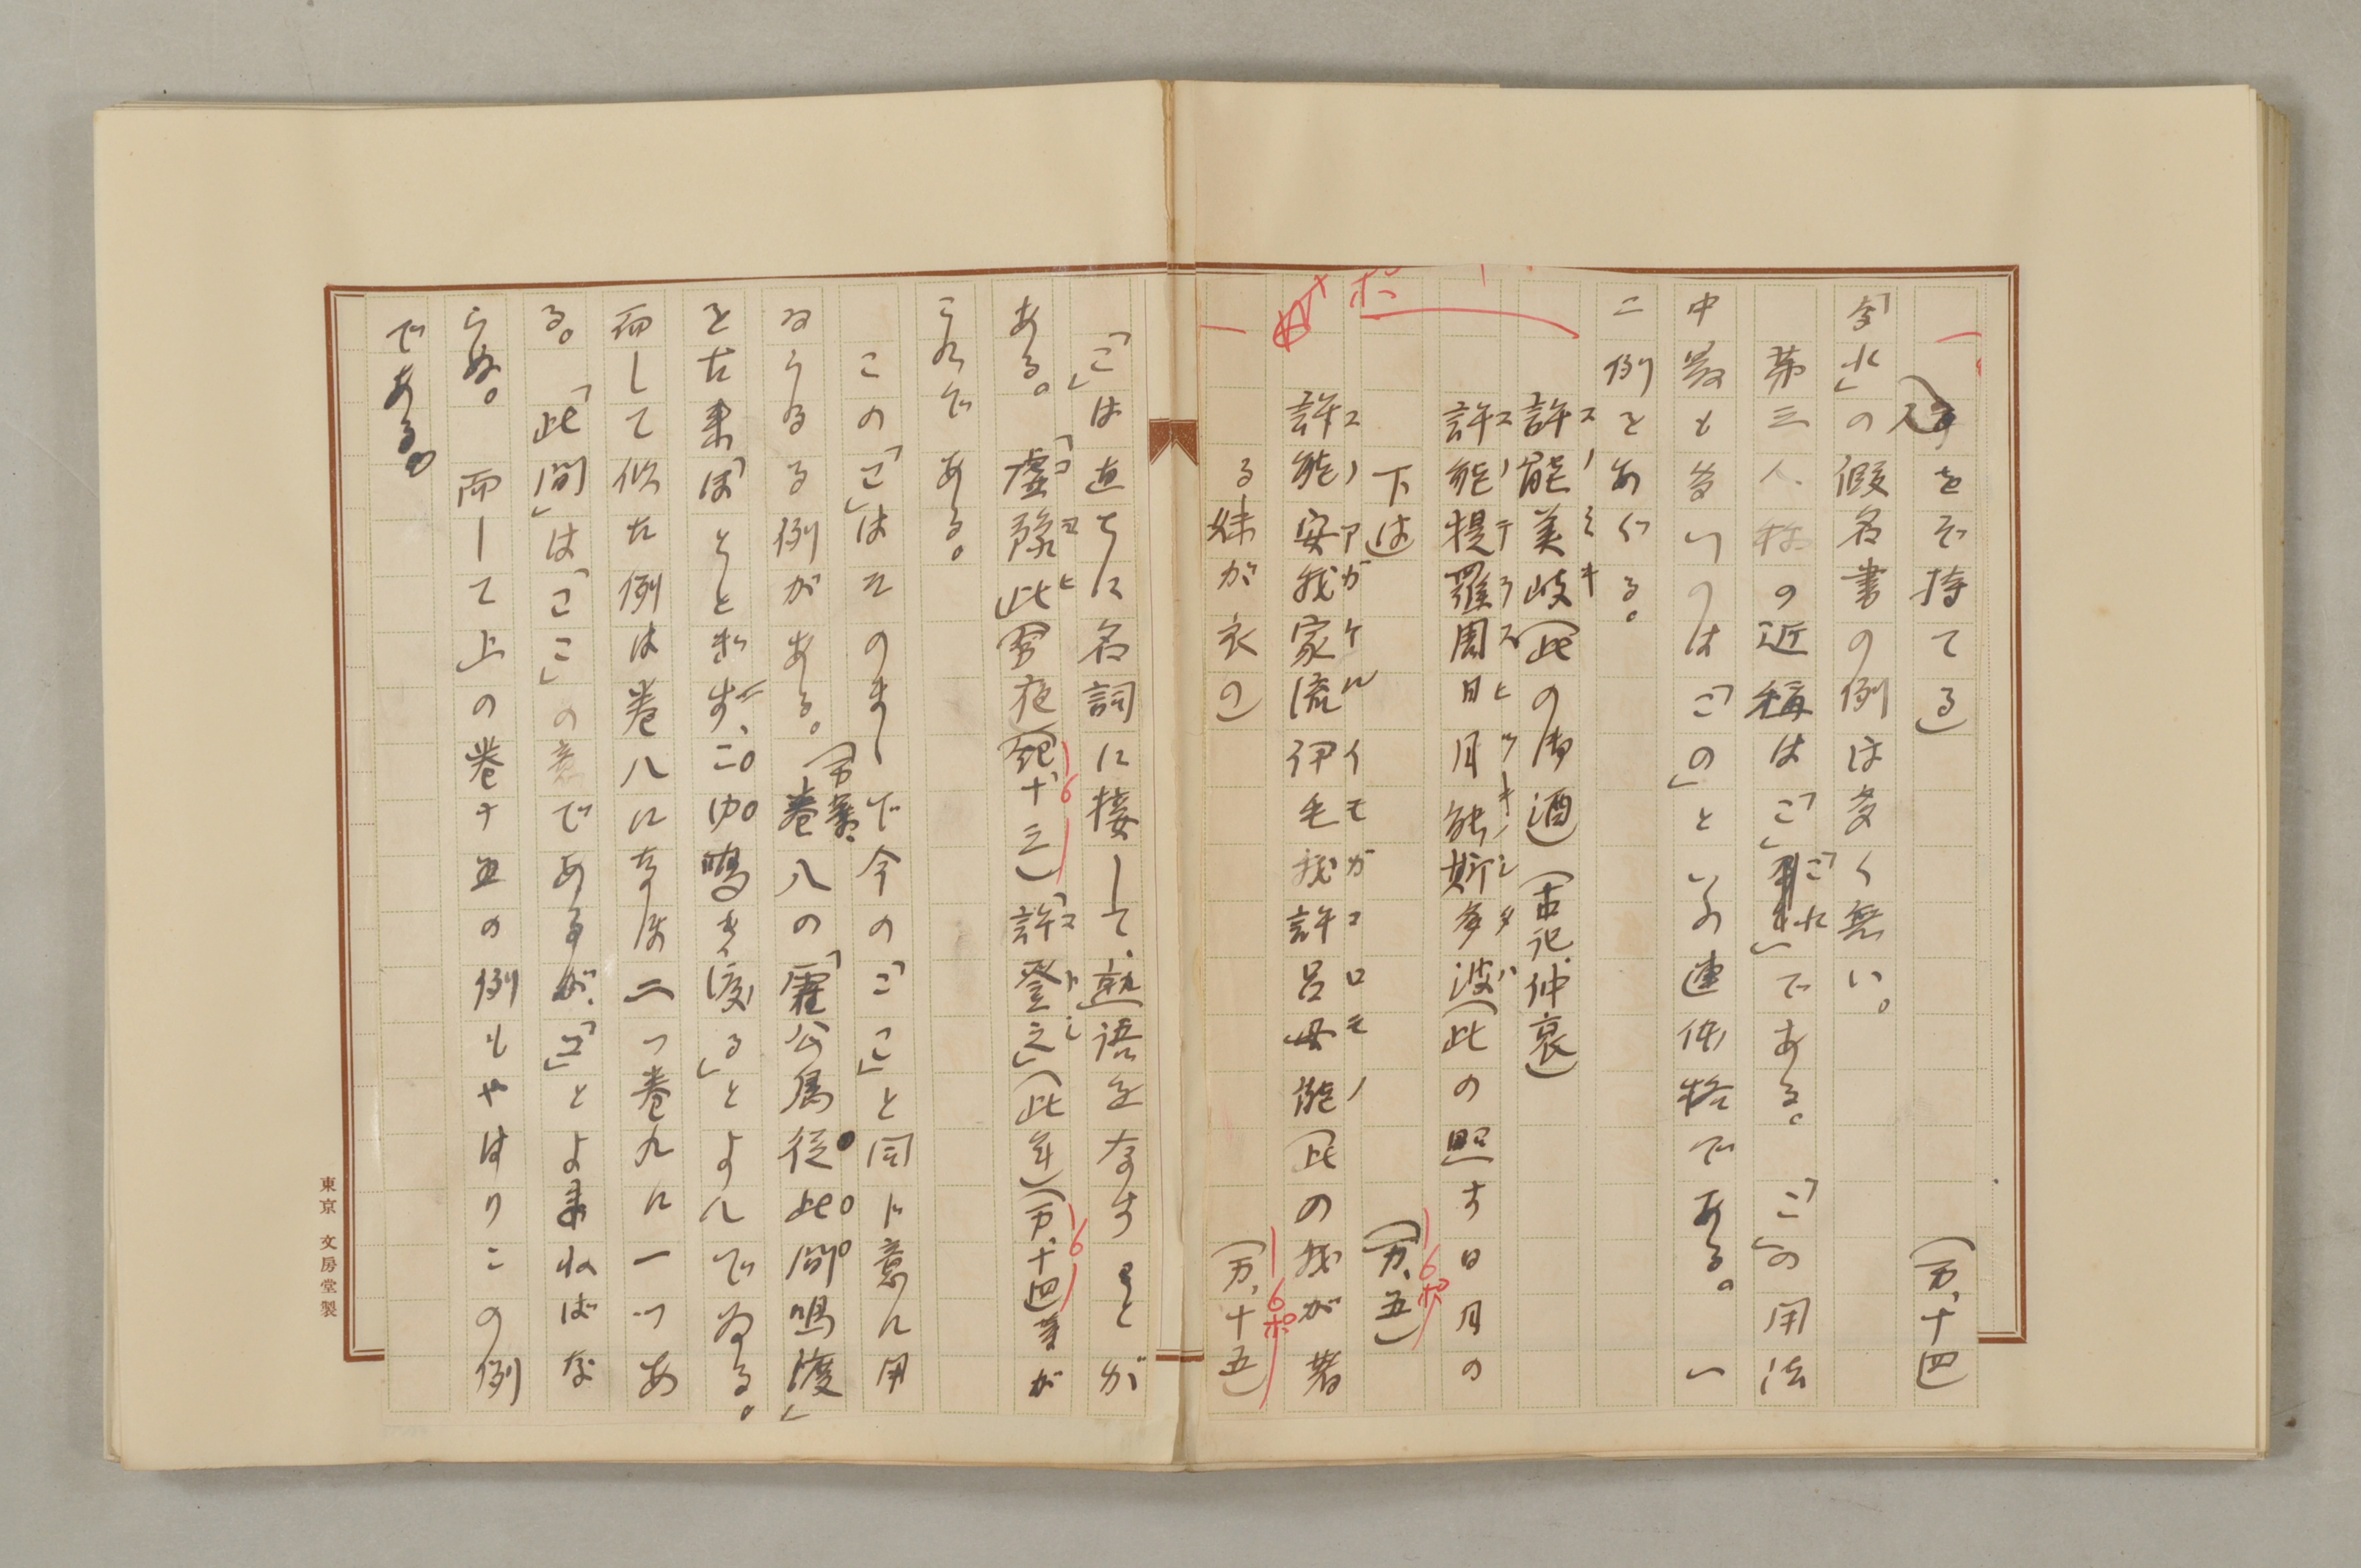 をぞ持てる) (万、十四
「今水」の假名書の例は多く無い。
第三人称の近稱は「こ」「これ」である。「こ」の用法
中最も多いのは「この」といふ連体格である。一
二例をあぐる。
許能美岐(此の御酒)(古記、仲哀)
コノミキ
許能提羅周日月能斯多波(此の照す日月の
コノテラスヒツキノシタハ
下は (万、五)
許能安我家流伊毛我許呂母能(此の我が著
コノアガケルイモガコロモノ
る妹が衣の) (万、十五)
16ポ
16ポ
「こ」は直ちに名詞に接して、熟語をなすことが
ある。「虚豫此」(今夜)(紀十三)「許登之」(此年)(万、十四)等が
コヨヒ
コトシ
16
16
これである。
この「こ」はそのまゝで今の「ここ」と同じ意に用
ゐらるる例がある。万葉、巻八の「霍公鳥従此間鳴渡」
を古来「ほととぎす、こゆ鳴き渡る」とよんでゐる。
而して似た例は巻八になほ二つ巻九に一つあ
る。「此間」は「ここ」の意であるが、「こ」とよまねばな
らぬ。而して上の巻十五の例もやはりこの例
である。
東京 文房堂製